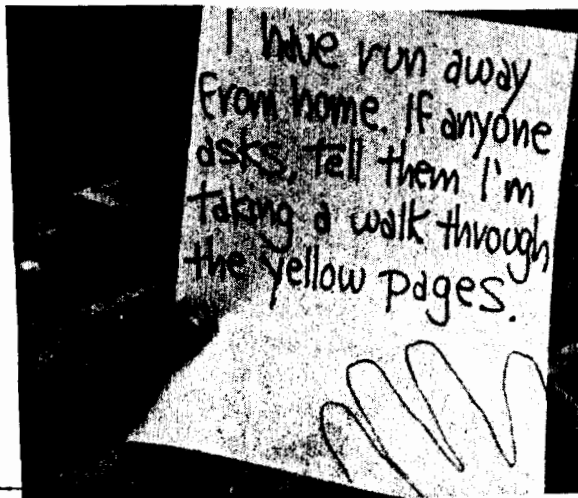 I have run away
from home. If anyone
asks, tell them I'm
taking a walk through
the yellow pages.